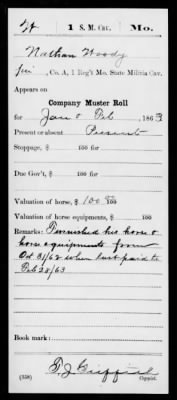 H 1 S. M. Cav. Mo.
Nathan Woody
Co. A, 1 Reg't Mo. State Militia Cav.
Appears on
Company Muster Roll
for Jan & Feb, 1863
Present or absent Present
Stoppage, $ 100 for
Due Gov't, $ 100 for
Valuation of horse, $ 100 00/100
Valuation of horse equipments, $ 100
Remarks: Furnished his horse &
horse equipments from
Oct 31/62 when last paid to
Feb 28/63
Book mark:
(358) Copyist.